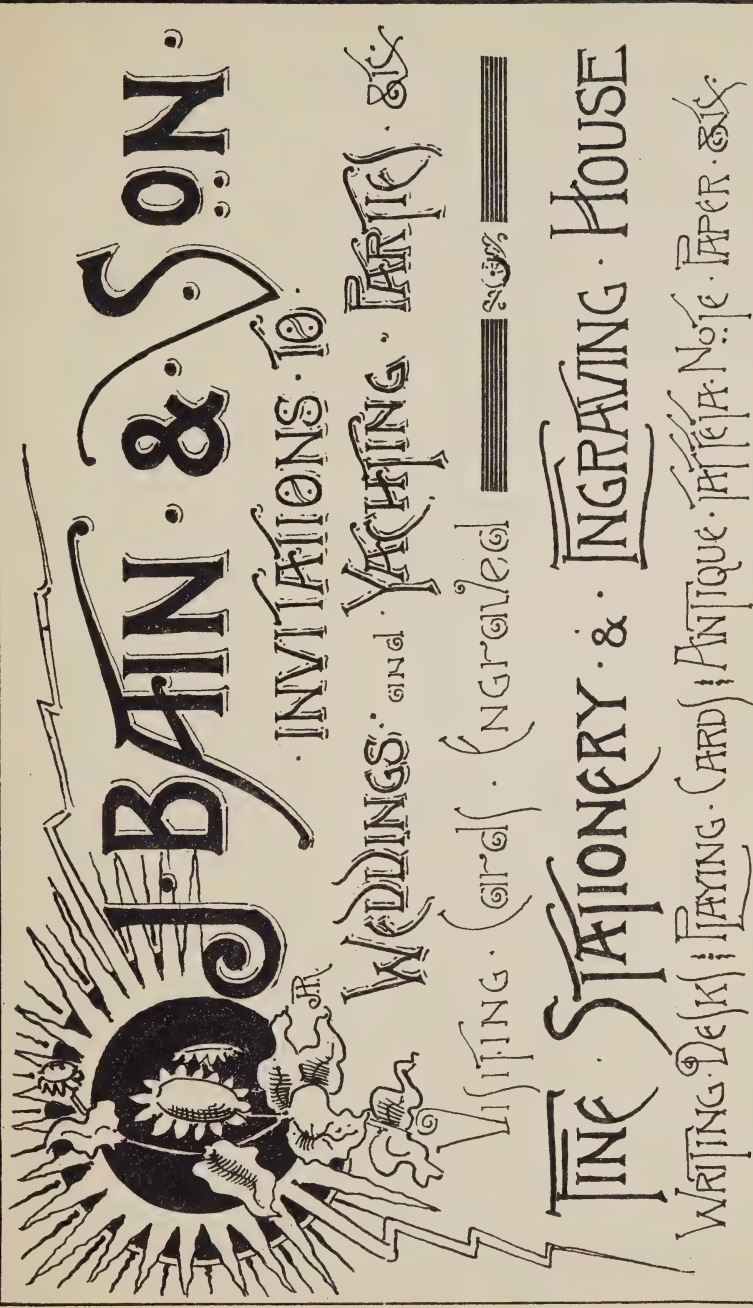 J. BAIN & SON.
INVITATIONS TO
WEDDINGS and YACHTING PARTIES &c.
Visiting Cards Engraved
FINE STATIONERY & ENGRAVING HOUSE
WRITING DESKS PLAYING CARDS ANTIQUE TAFFETA NOTE PAPER &c.